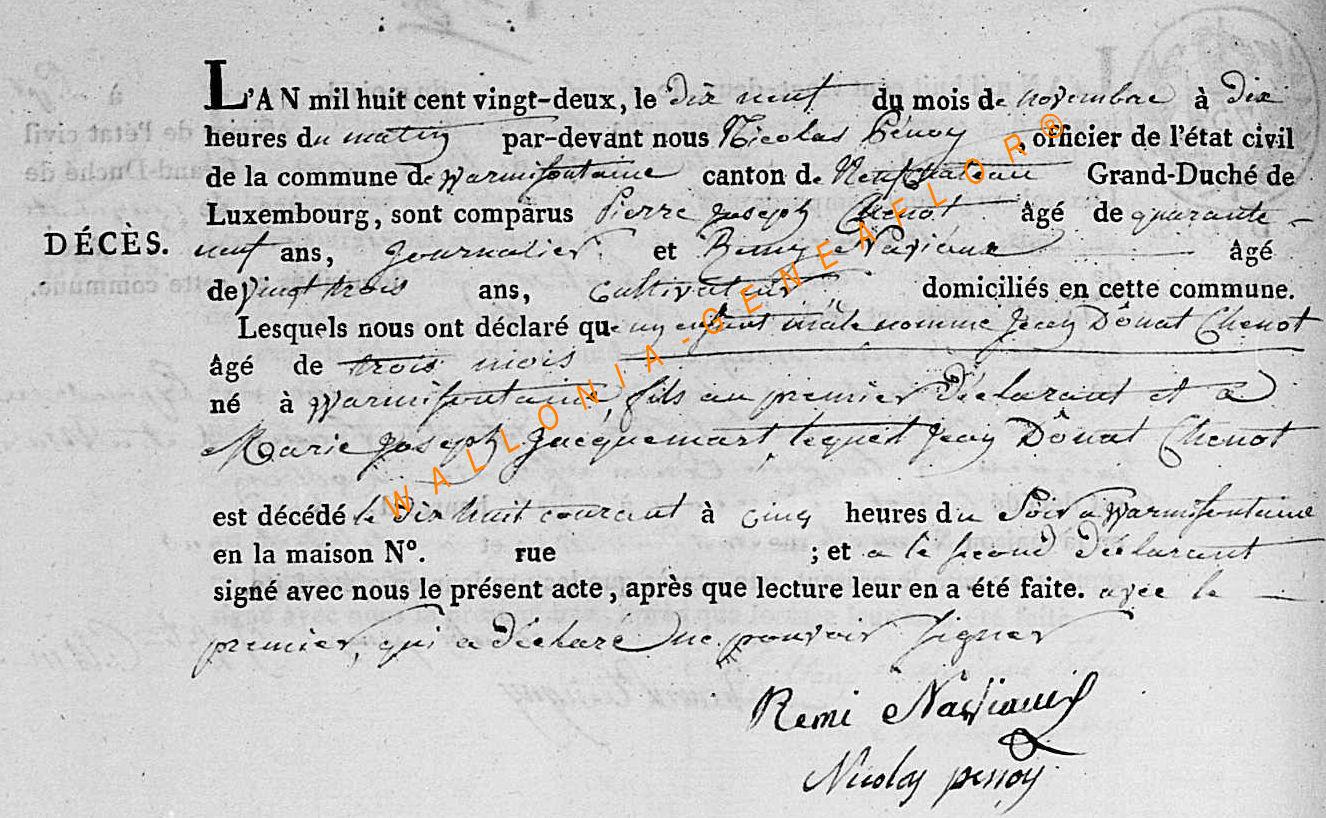 L'AN mil huit cent vingt-deux, le dix neuf du mois de novembre à dix
heures du matin par-devant nous Nicolas Pénoy, officier de l'état civil
de la commune de Warmifontaine canton de Neufchateau Grand-Duché de
Luxembourg, sont comparus Pierre Joseph Chenot âgé de quarante
DÉCÈS. neuf ans, journalier et Remy Naviaux âgé
de vingt trois ans, cultivateur domiciliés en cette commune.
Lesquels nous ont déclaré que un enfant male nommé Jean Dônat Chenot
âgé de trois mois
né à Warmifontaine, fils au premier déclarant et a
Marie Joseph Jacquemart lequel Jean Dônat Chenot
est décédé le dix huit courant à cinq heures du Soir a Warmifontaine
en la maison N°. rue ; et a le second déclarant
signé avec nous le présent acte, après que lecture leur en a été faite. avec le
premier, qui a déclaré ne pouvoir signer
Remi
Nicolas penoy
WALLONIA-GENEAFLOR®